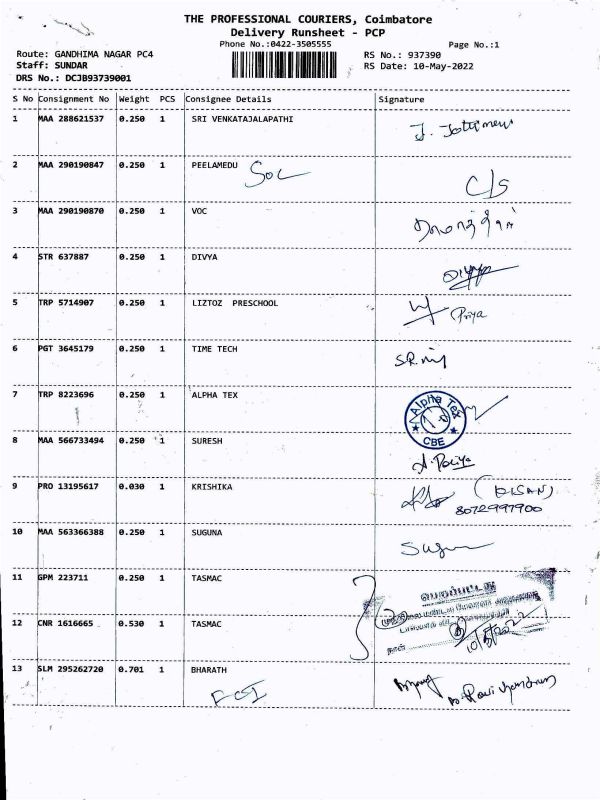 THE PROFESSIONAL COURIERS, Coimbatore
Delivery Runsheet - PCP
Phone No.:0422-3505555
Page No.:1
Route: GANDHIMA NAGAR PC4
RS No.: 937390
Staff: SUNDAR
RS Date: 10-May-2022
DRS No.: DCJB93739001
S No Consignment No Weight PCS Consignee Details Signature
1 MAA 288621537 0.250 1 SRI VENKATAJALAPATHI
2 MAA 290190847 0.250 1 PEELAMEDU SOC
C/S
3 MAA 290190870 0.250 1 VOC
4 STR 637887 0.250 1 DIVYA
5 TRP 5714907 0.250 1 LIZTOZ PRESCHOOL
Priya
6 PGT 3645179 0.250 1 TIME TECH
7 TRP 8223696 0.250 1 ALPHA TEX
Alpha Tex
CBE
8 MAA 566733494 0.250 1 SURESH
9 PRO 13195617 0.030 1 KRISHIKA
8072997900
10 MAA 563366388 0.250 1 SUGUNA
11 GPM 223711 0.250 1 TASMAC
12 CNR 1616665 0.530 1 TASMAC
நாள்
13 SLM 295262720 0.701 1 BHARATH
FCI